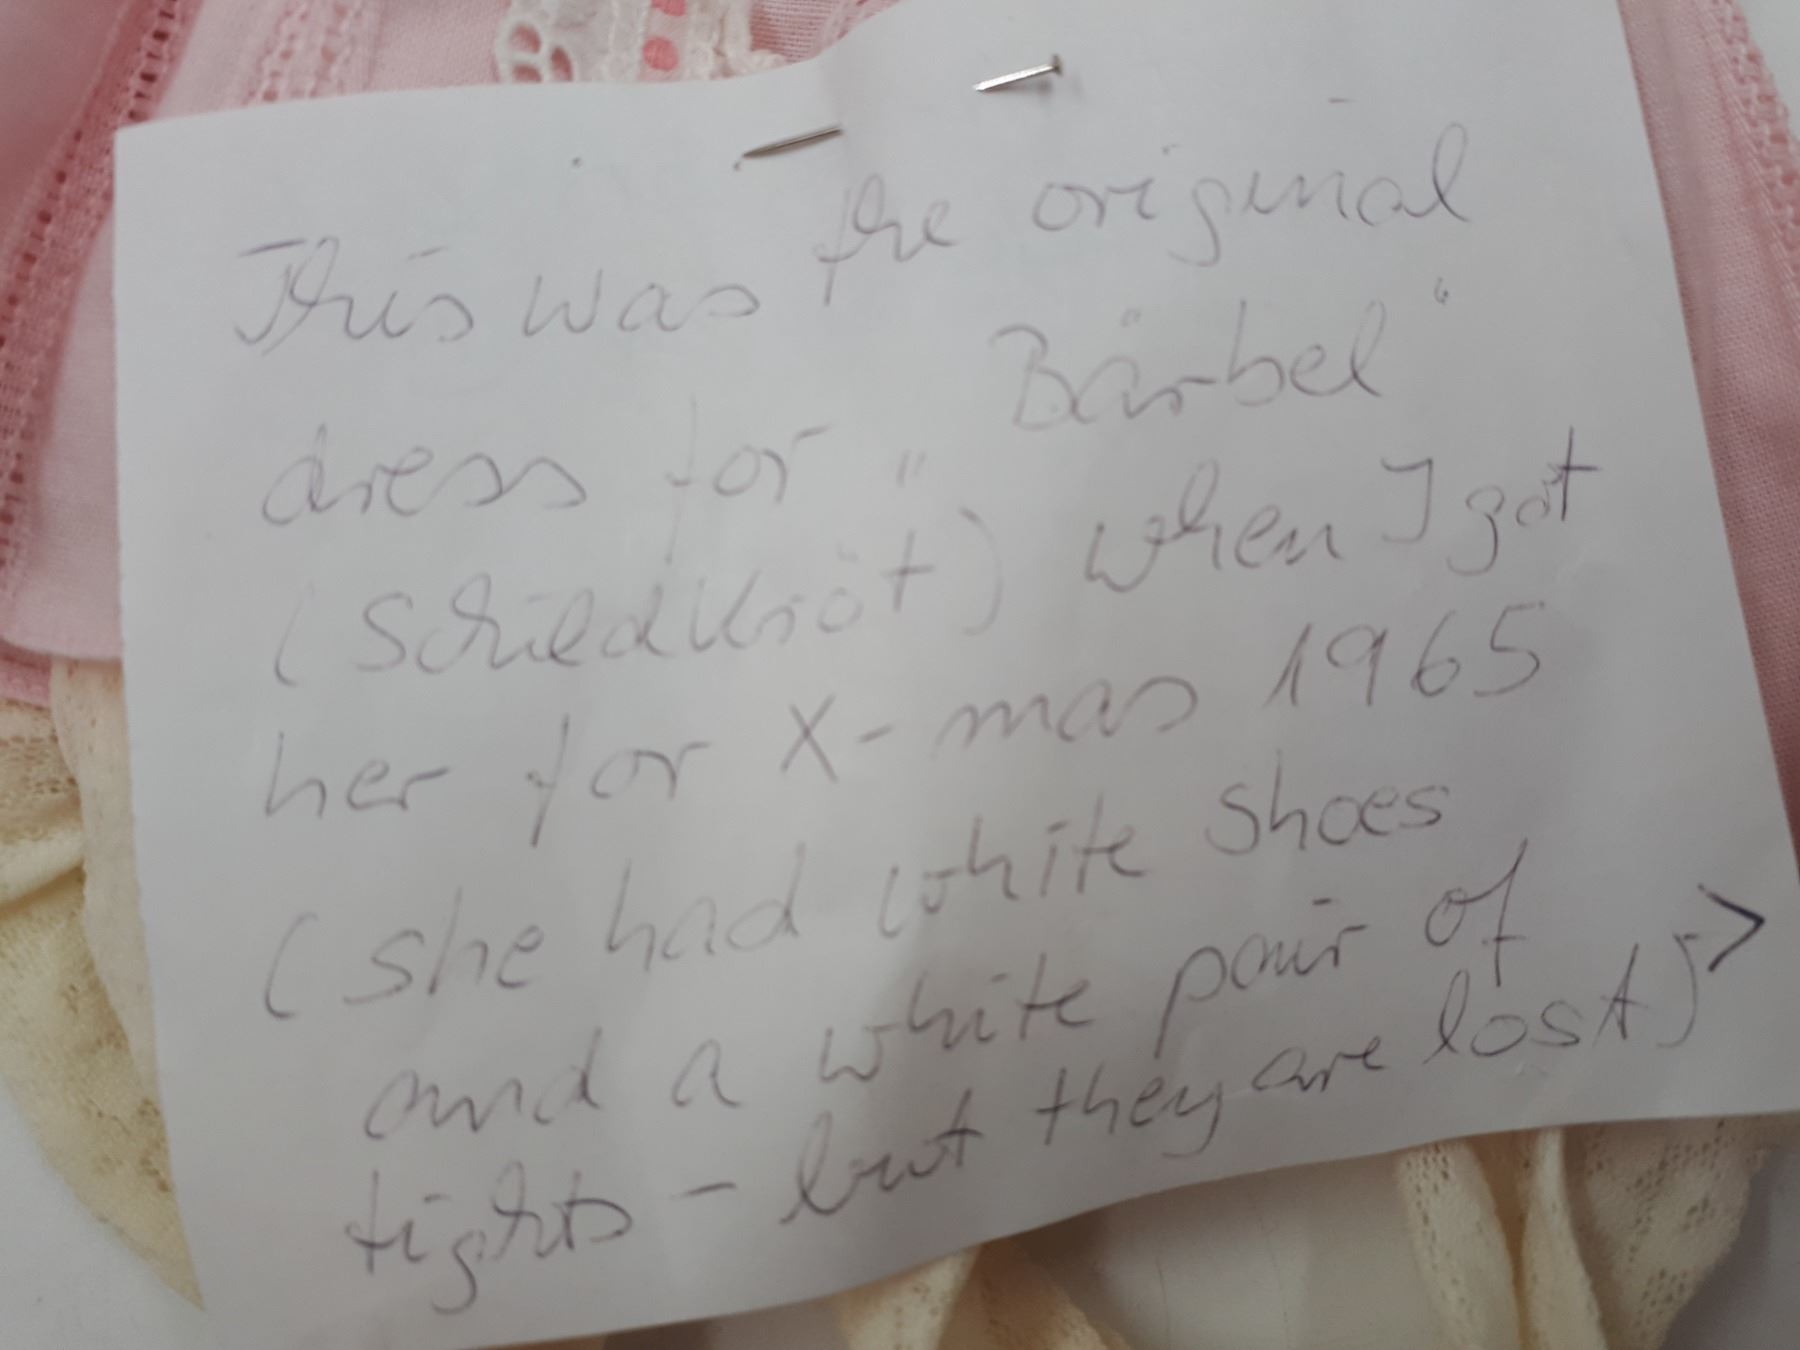 This was the original
dress for "Bärbel"
(Schildkröt) when I got
her for X-mas 1965
(she had white shoes
and a white pair of
tights - but they are lost)
>